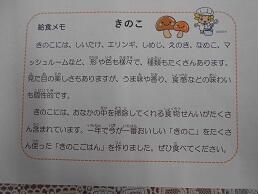 給食メモ
きのこ
きのこには、しいたけ、エリンギ、しめじ、えのき、なめこ、マ
ッシュルームなど、形や色も様々で、種類もたくさんあります。
見た目の楽しさもありますが、うま味や香り、食感などの味わい
も個性的です。
きのこには、おなかの中を掃除してくれる食物せんいがたくさ
ん含まれています。一年で今が一番おいしい「きのこ」をたくさ
ん使った「きのこごはん」を作りました。ぜひ食べてください。